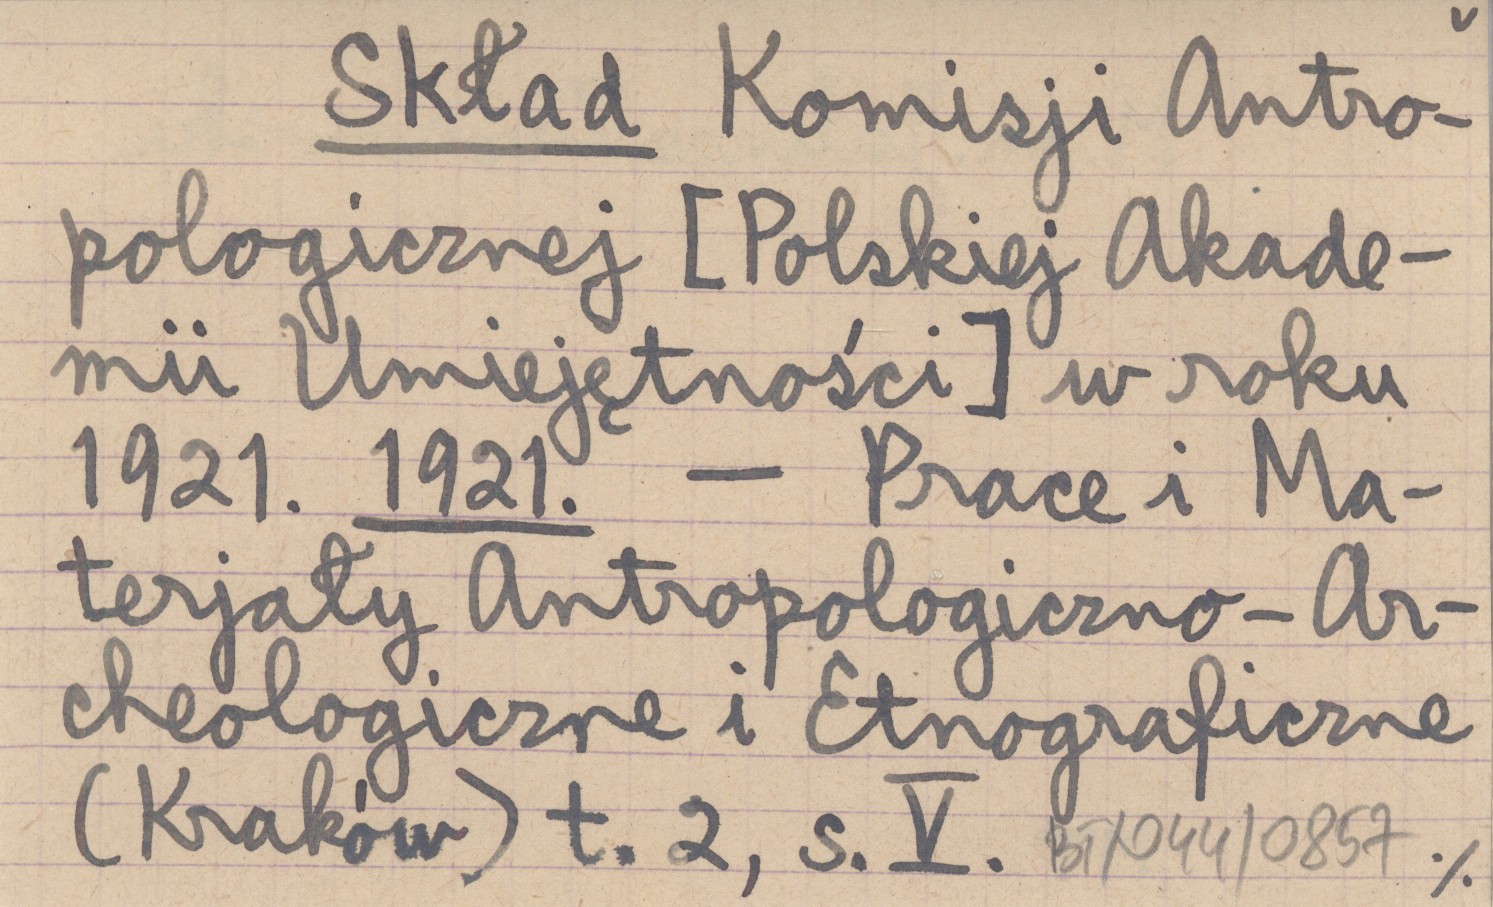 Skład Komisji Antro-
pologicznej [Polskiej Akade-
mii Umiejętności] w roku
1921. 1921. — Prace i Ma-
terjały Antropologiczno-Ar-
cheologiczne i Etnograficzne
(Kraków) t. 2, s. V. BT/044/0857 ./.